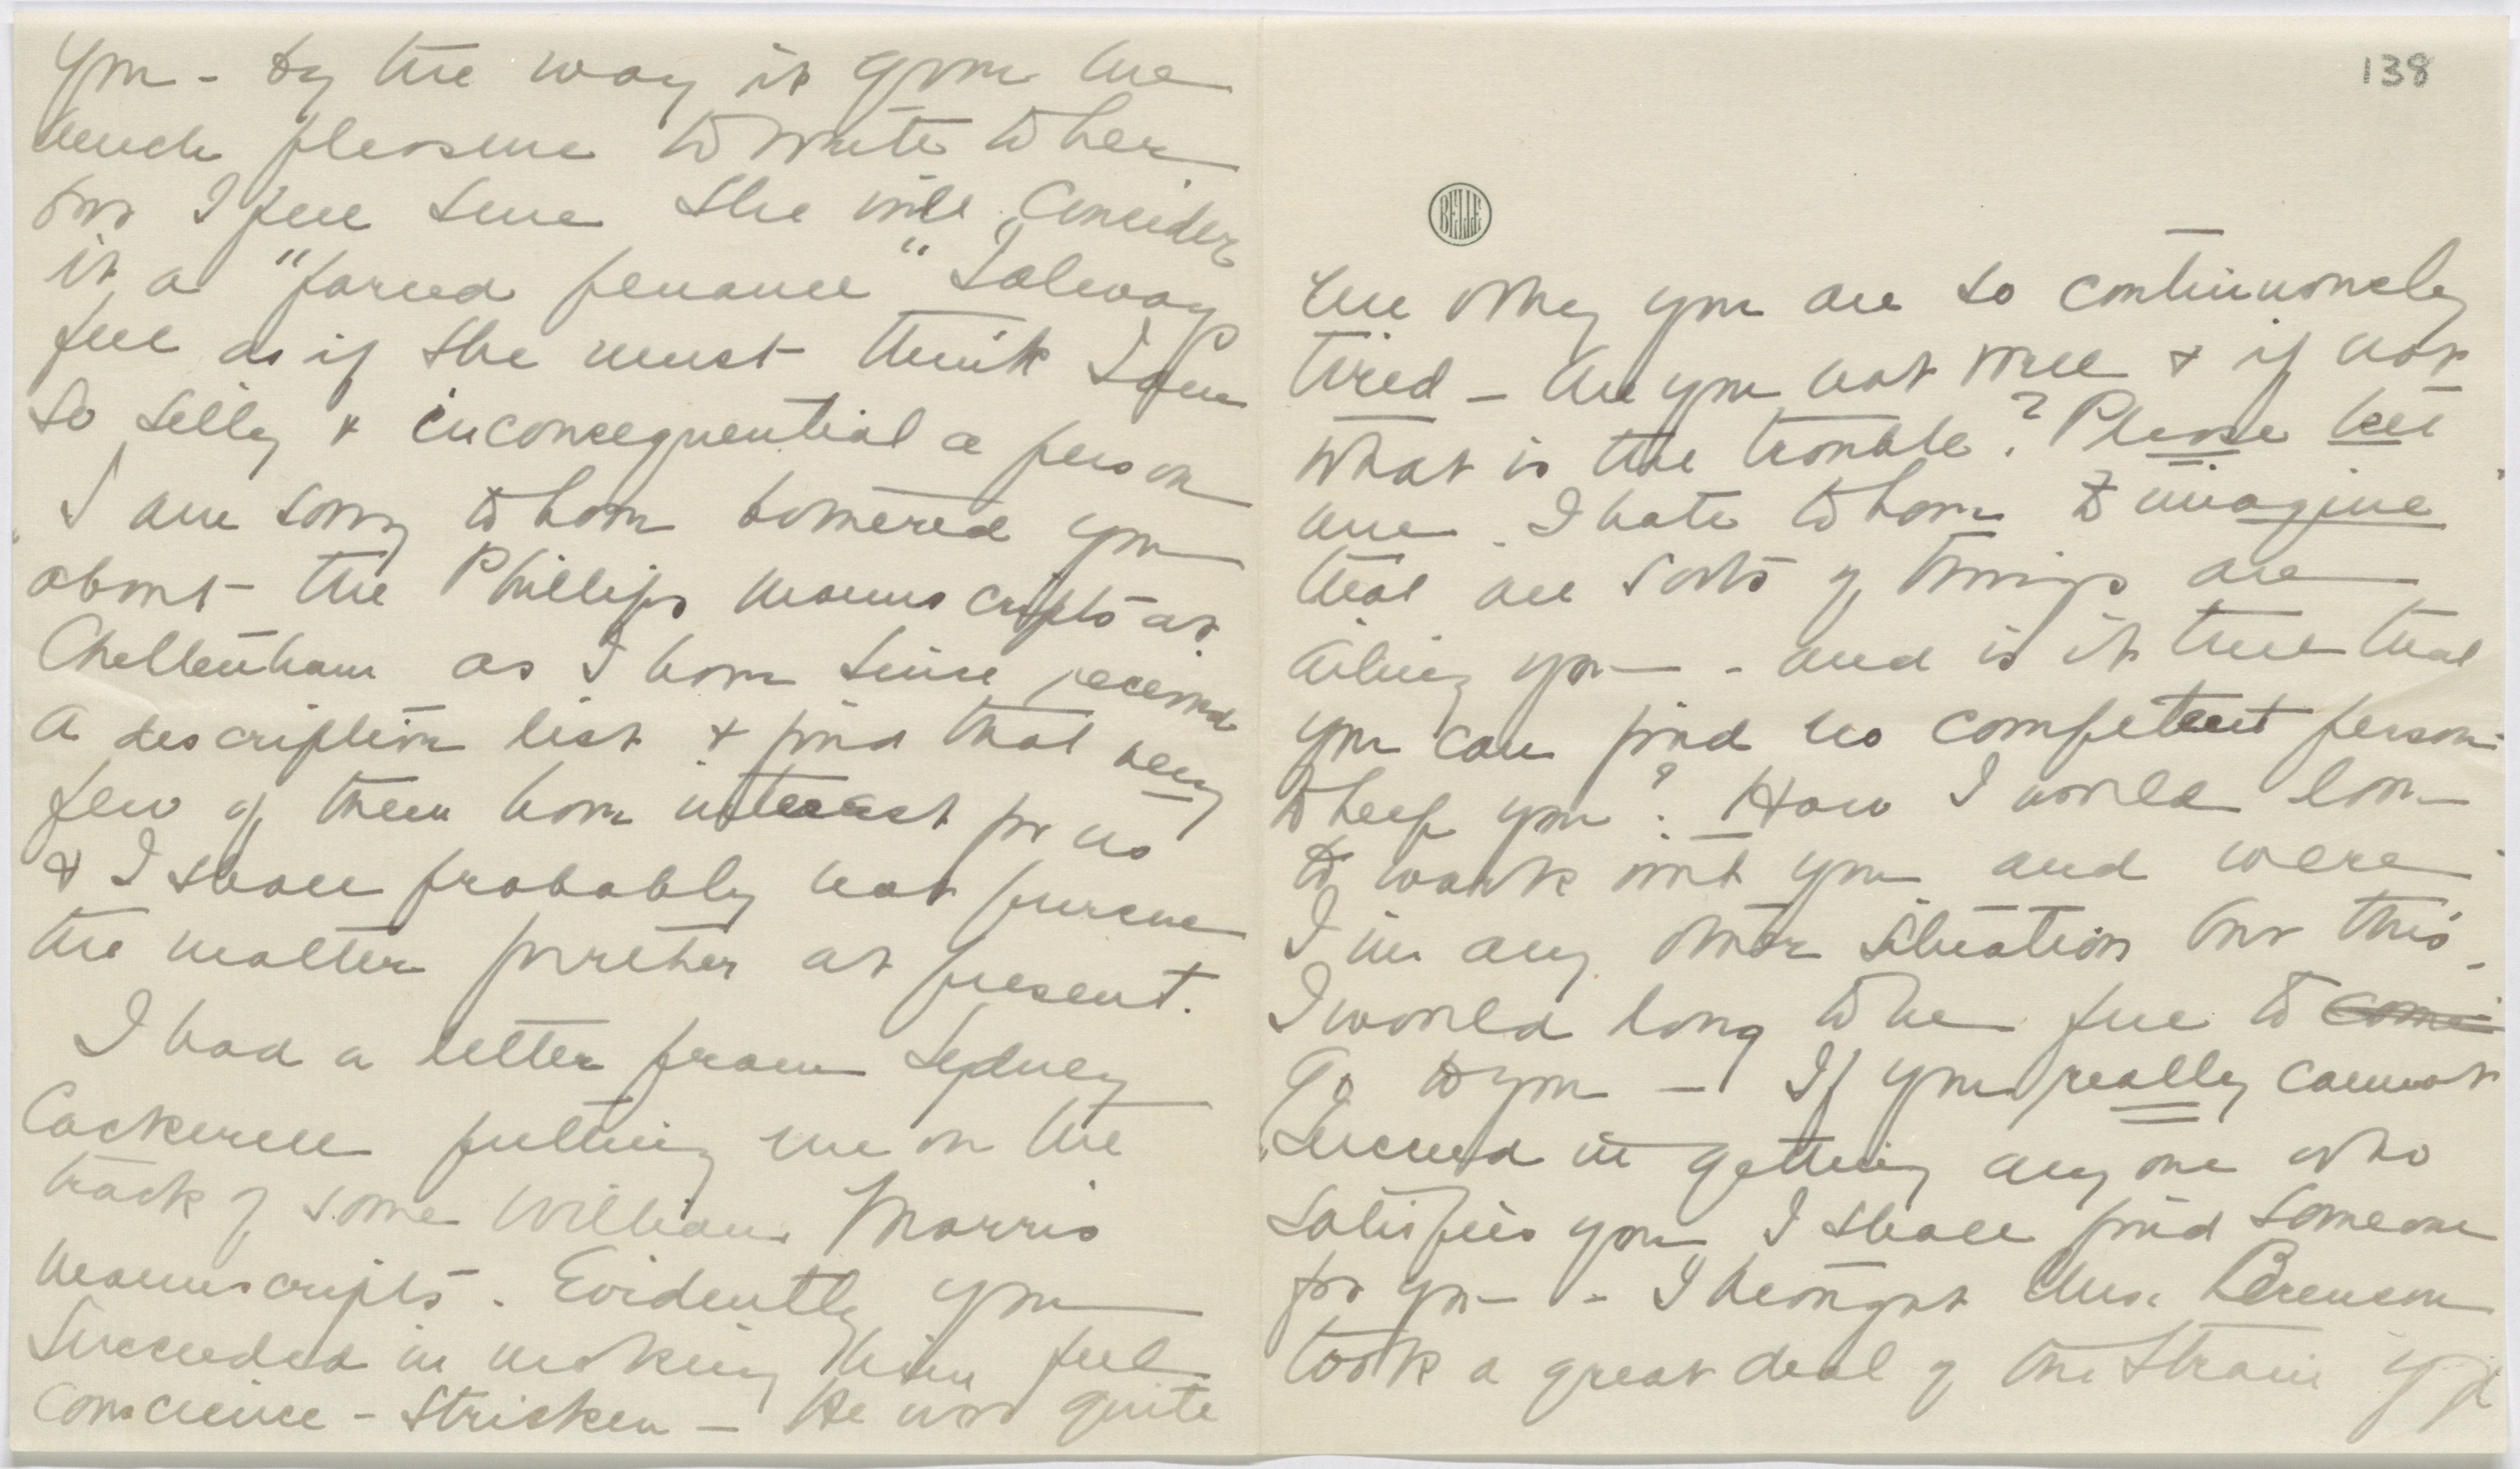 you - by the way it gives me
much pleasure to write to her
but I feel sure she will consider
it a "forced penance" I always
feel as if she must think I am
so silly & inconsequential a person
I am sorry to have bothered you
about the Phillips manuscripts at
Cheltenham as I have since received
a descriptive list & find that very
few of them have interest for us
& I shall probably not pursue
the matter further at present.
I had a letter from Sydney
Cockerell putting me on the
track of some William Morris
manuscripts. Evidently you
succeeded in making him feel
conscience-stricken - He was quite
138
BELLE
me why you are so continuously
tired - Are you not well & if not
what is the trouble? Please tell
me. I hate to have to imagine
that all sorts of things are
ailing you - and is it true that
you can find no competent person
to help you? How I would love
to work with you and were
I in any other situation but this
I would long to be free to come
go to you - If you really cannot
succeed in getting any one who
satisfies you I shall find someone
for you - I thought Mrs. Berenson
took a great deal of the strain off